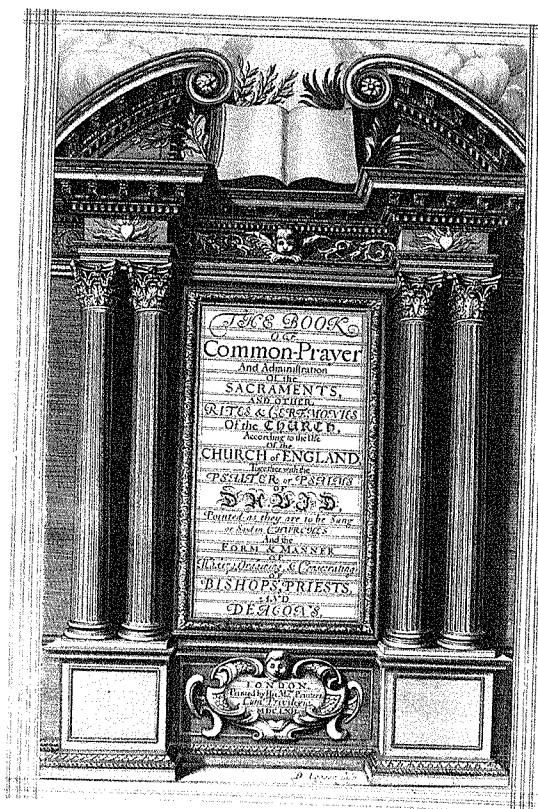 THE BOOK
OF
Common-Prayer
And Adminiſtration
Of the
SACRAMENTS,
AND OTHER
RITES & CEREMONIES
Of the CHURCH,
According to the Uſe
Of the
CHURCH of ENGLAND
Together with the
PSALTER or PSALMS
OF
DAVID,
Pointed as they are to be Sung
or Said in CHURCHES
And the
FORM & MANNER
OF
Making, Ordaining, & Conſecrating
OF
BISHOPS, PRIESTS,
AND
DEACONS,
LONDON,
Printed by His Ma.ties Printers
Cum Privilegio
D. Loggan